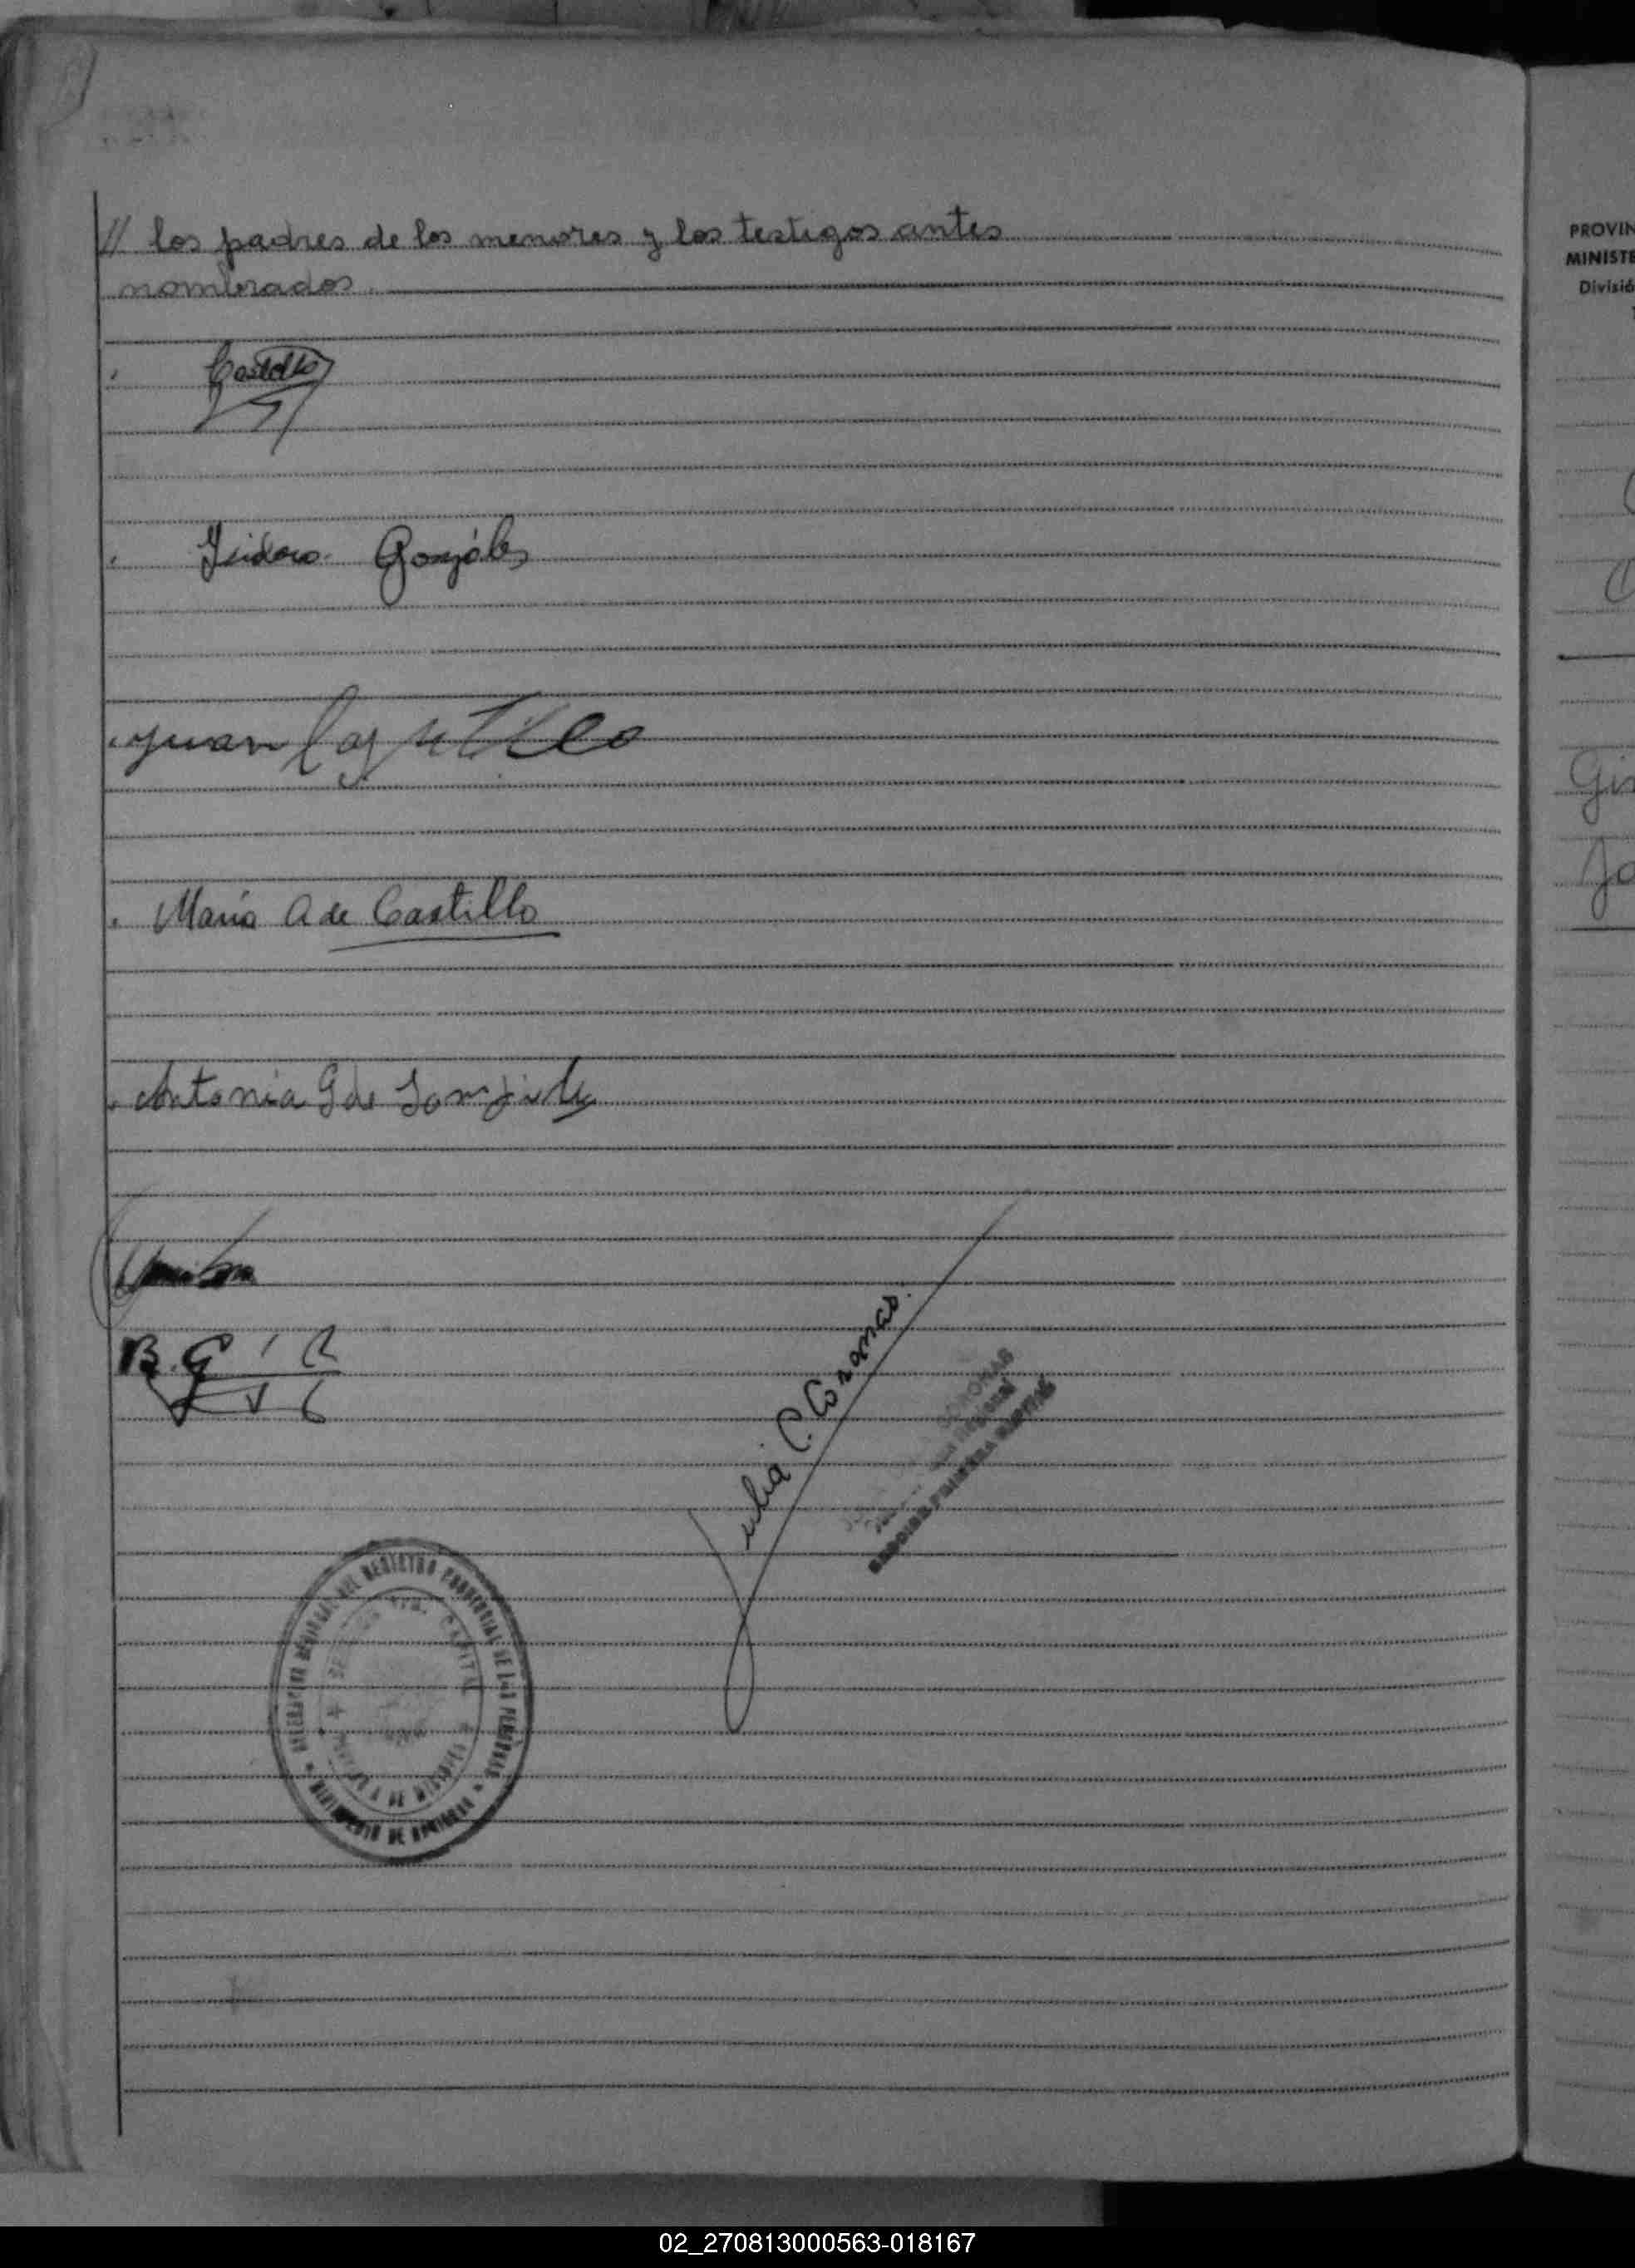 // los padres de los menores y los testigos antes
nombrados.
Castillo
Isidoro Gonzáles
Juan Castillo
María A de Castillo
Antonia G de
B. G
Julia C. Coronas.
CORONAS
SECCION PRIMERA
DEL REGISTRO PROVINCIAL DE LAS PERSONAS
CAPITAL
PROVIN
MINISTE
Divisió
Gi
Ja
02_270813000563-018167